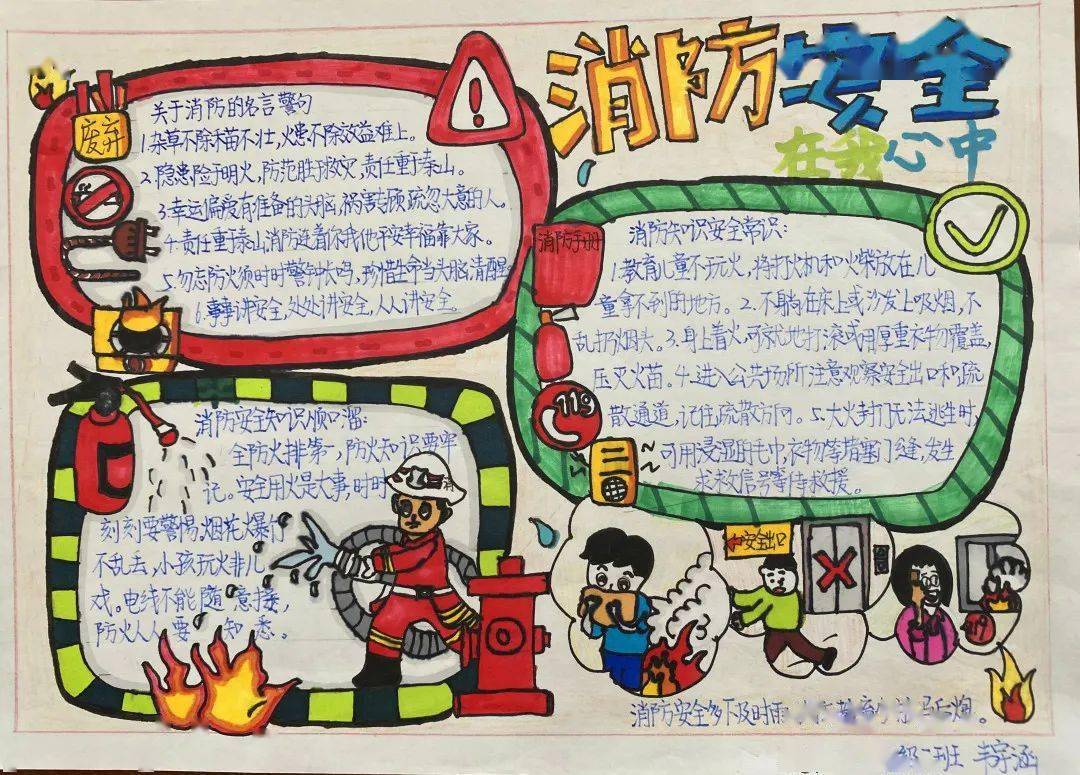 消防安全
在我心中
关于消防的名言警句
1.杂草不除禾苗不壮,火患不除效益难上。
2.隐患险于明火,防范胜于救灾,责任重于泰山。
3.幸运偏爱有准备的头脑,祸害专顾疏忽大意的人。
4.责任重于泰山消防连着你我他平安幸福靠大家。
5.勿忘防火须时时警钟长鸣,珍惜生命当头脑清醒
6.事事讲安全,处处讲安全,人人讲安全。
废弃
消防手册
消防知识安全常识:
1.教育儿童不玩火,将打火机和火柴放在儿
童拿不到的地方。2.不躺在床上或沙发上吸烟,不
乱扔烟头。3.身上着火,可就地打滚或用厚重衣物覆盖,
压灭火苗。4.进入公共场所注意观察安全出口和疏
散通道,记住疏散方向。5.大火封门无法逃生时,
可用浸湿的毛巾,衣物等堵塞门缝,发生
求救信号等待救援。
119
消防安全知识顺口溜:
全防火排第一,防火知识要牢
记。安全用火是大事,时时
刻刻要警惕。烟花爆竹
不乱去,小孩玩火非儿
戏。电线不能随意接,
防火人人要知悉。
安全出口
119
消防安全多下及时雨
马后炮。
班 韦宇涵